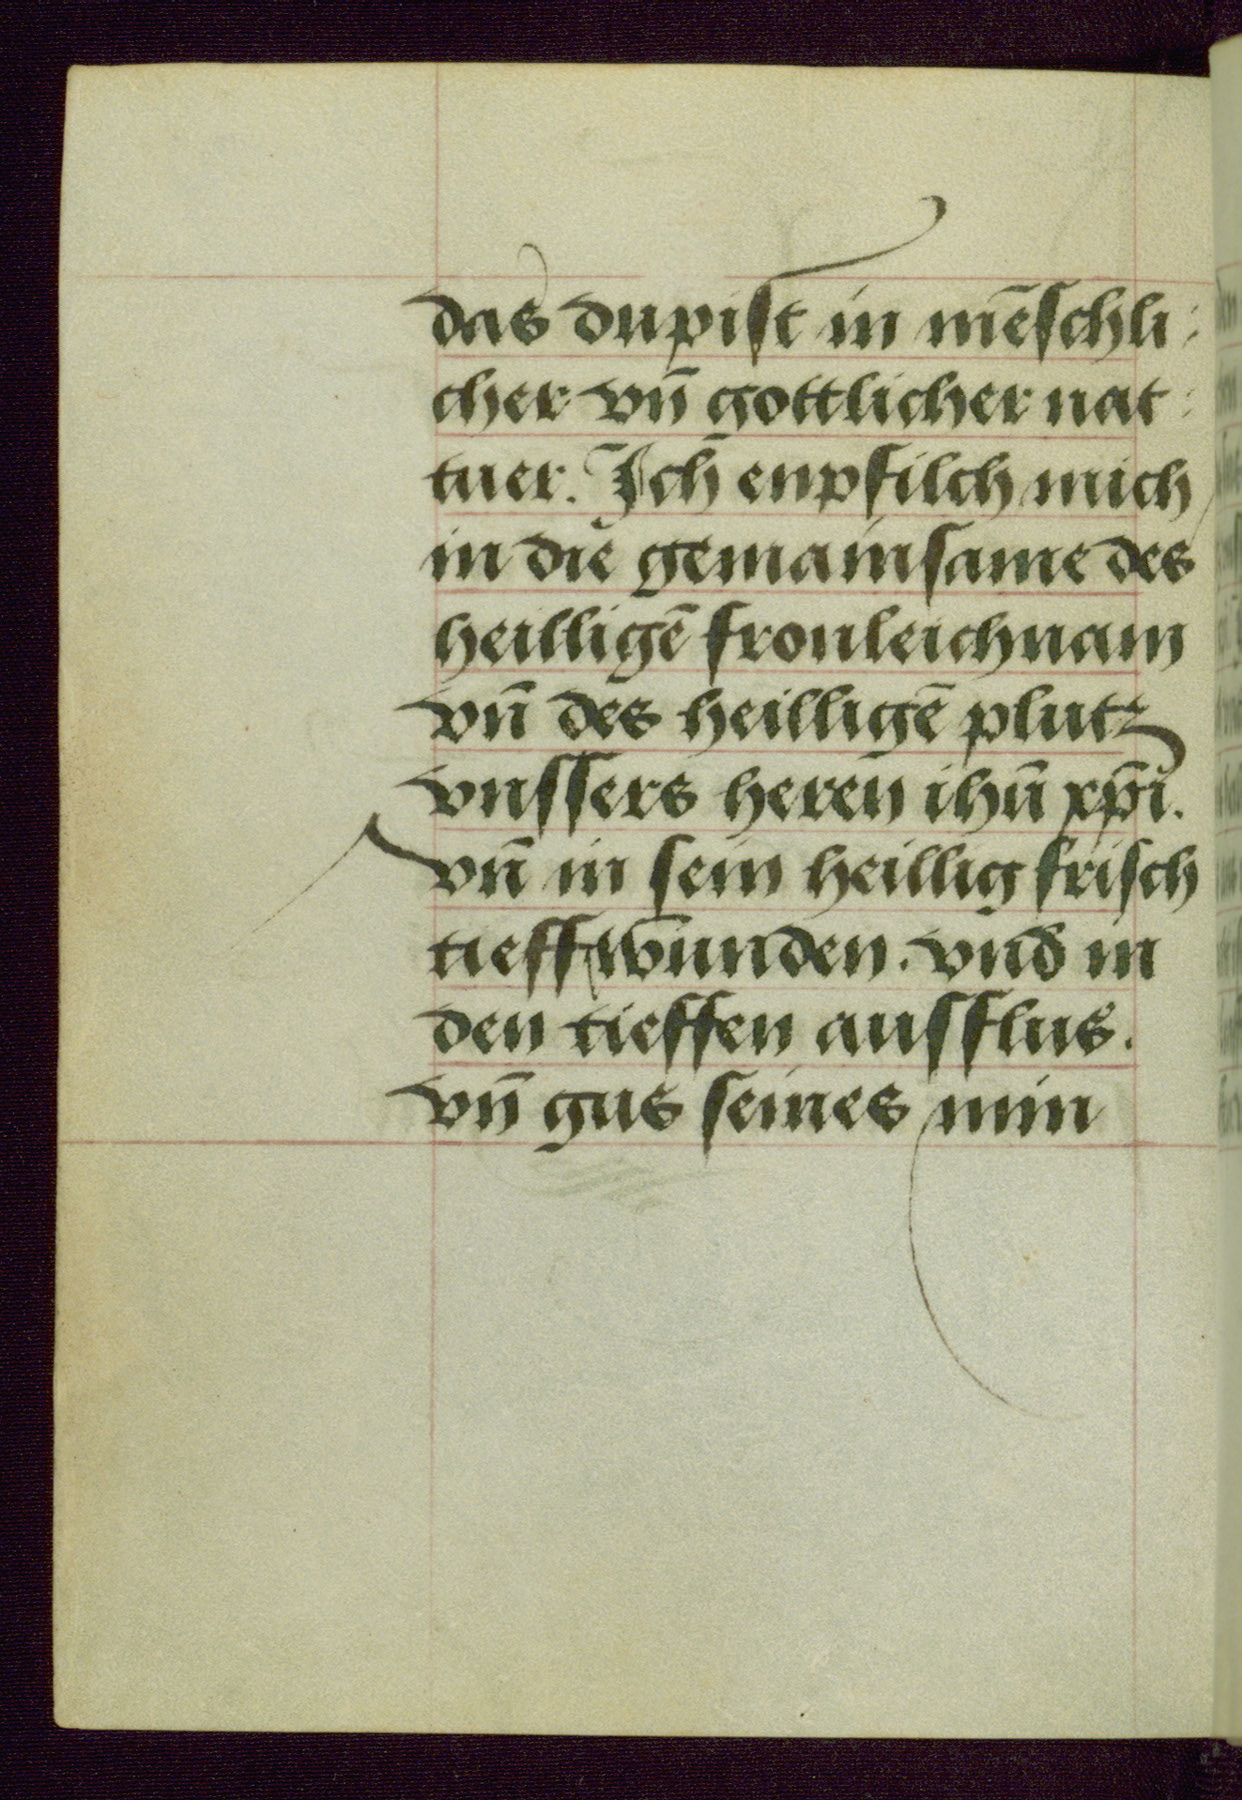 das du pist in mēschli:
cher vn̄ gottlicher nat:
tuer. Ich enpfilch mich
in die gemainsame des
heilligē fronleichnam
vn̄ des heilligē plutz
vnssers heren ihū xp̄i.
vn̄ in sein heillig frisch
tieff wunden. vnd in
den tieffen ausflus.
vn̄ gus seines min